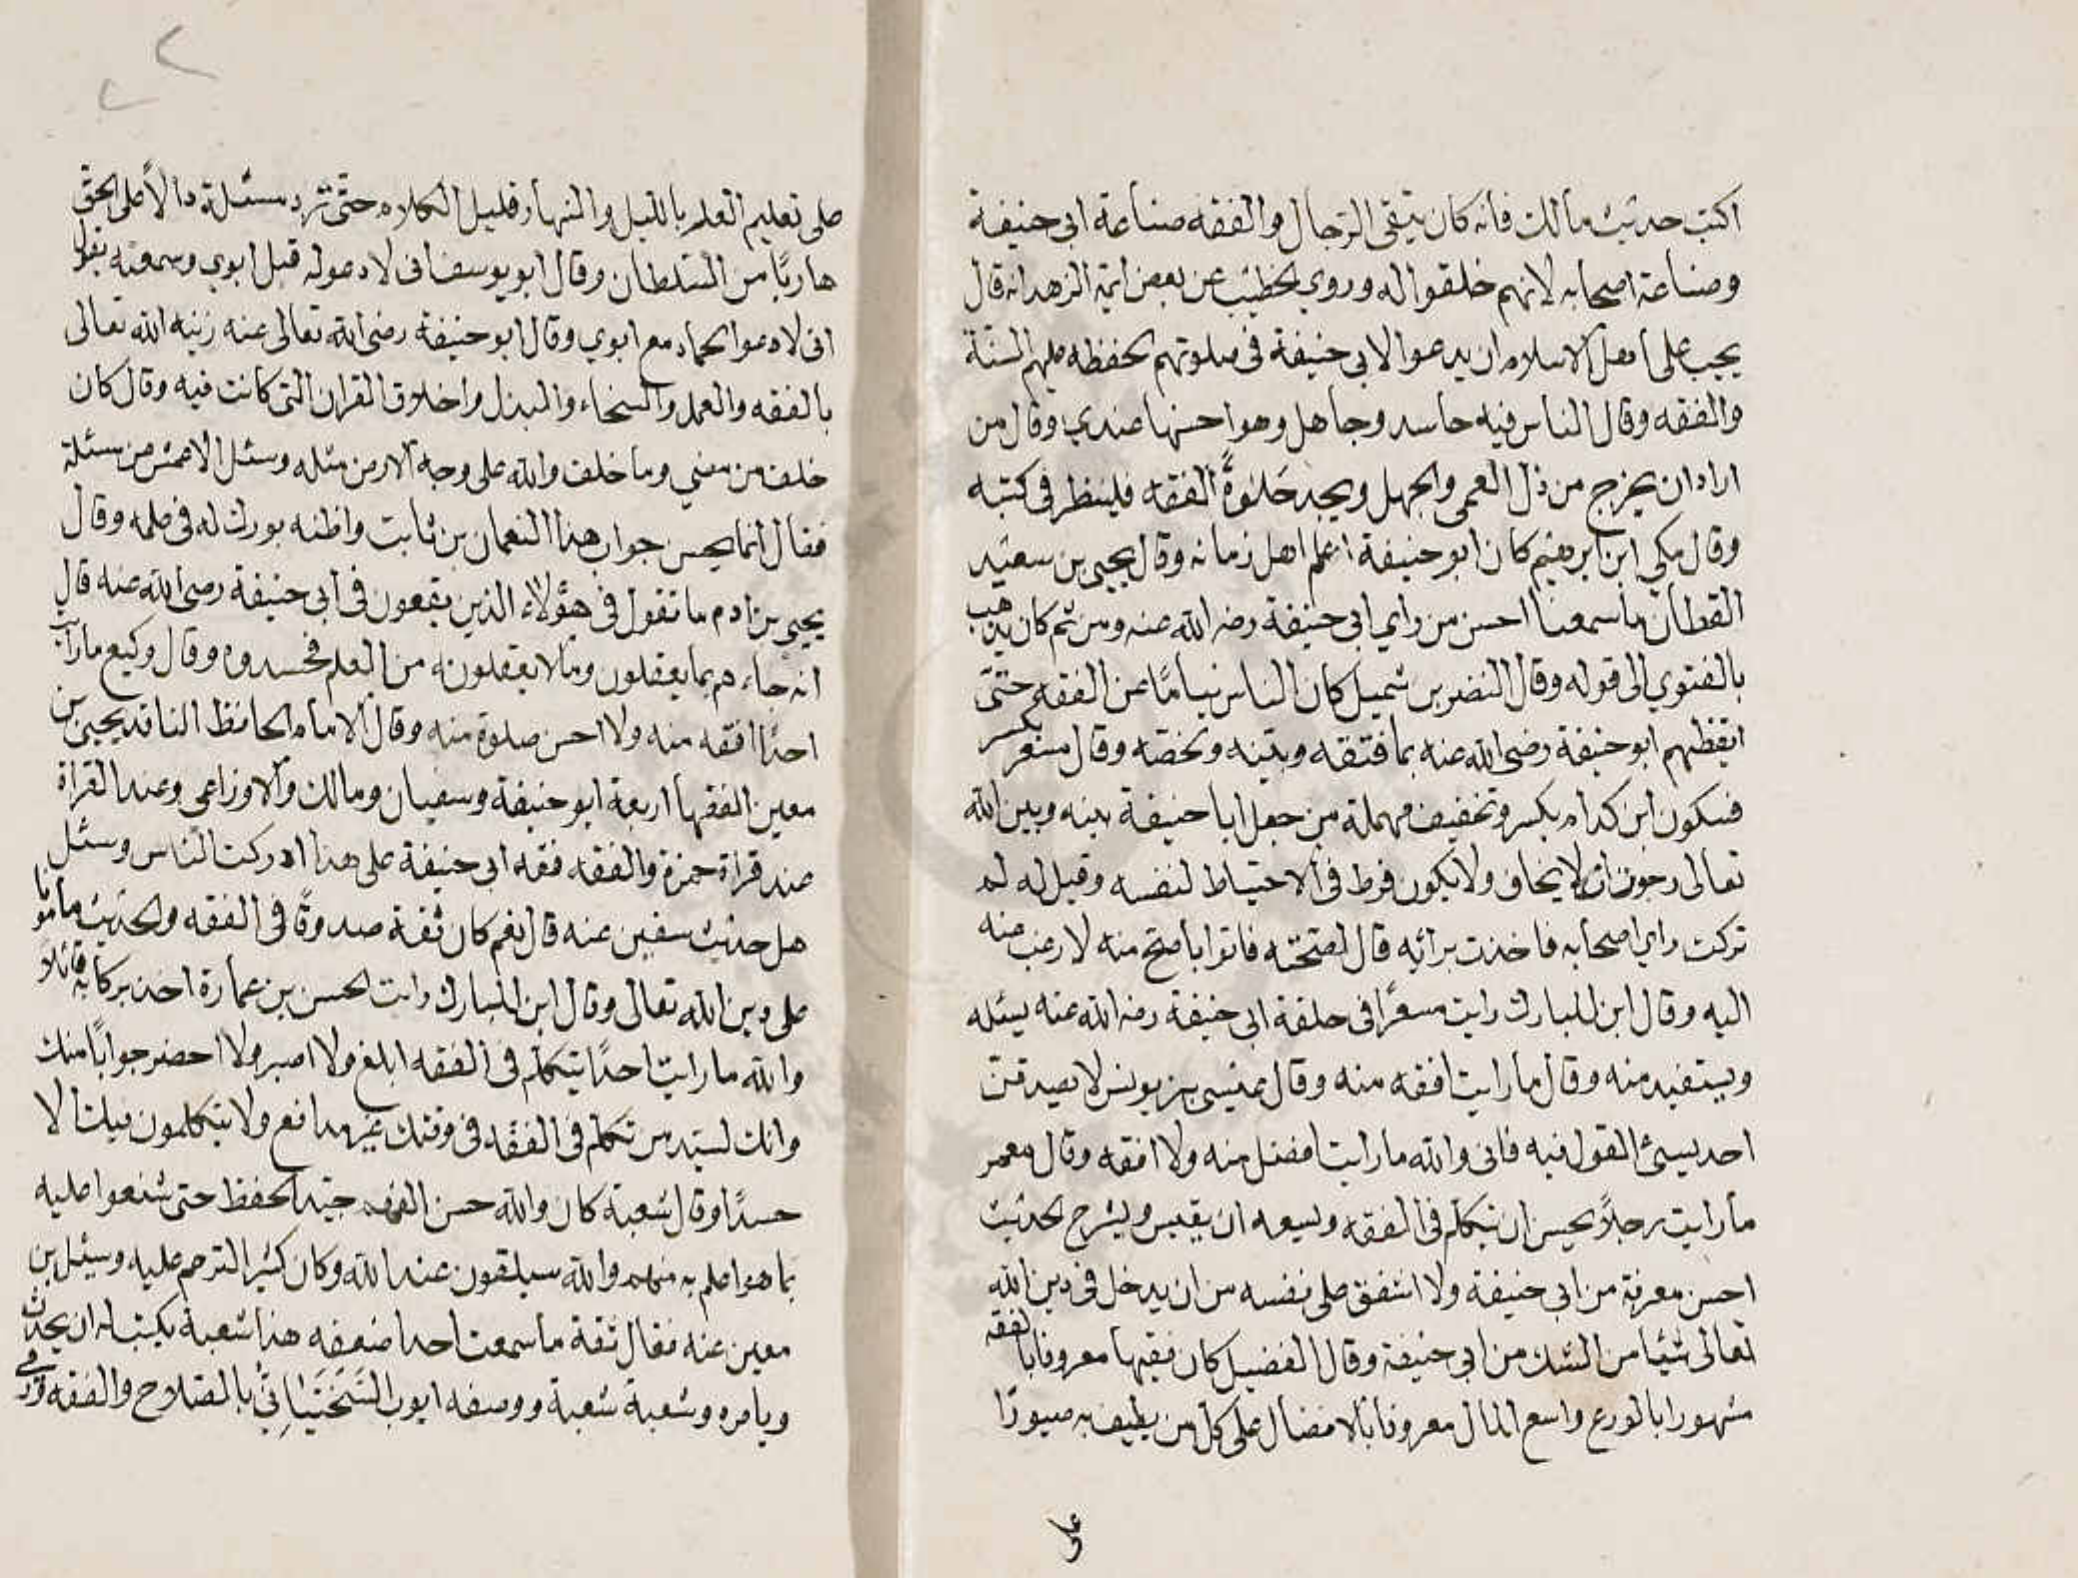 اكتب حديث مالك فانه كان ينتقى الرجال والفقه صناعة ابى حنيفة
وصناعة اصحابه لانهم خلقوا له وروي الخطيب عن بعض ايمة الزهد انه قال
يجب على اهل الاسلام ان يدعوا لابى حنيفة فى صلوتهم لحفظه عليهم السنة
والفقه وقال الناس فيه حاسد وجاهل وهو احسنها عندي وقال من
اراد ان يخرج من ذل العمى والجهل ويجد حلاوة الفقه فلينظر فى كتبه
وقال مكي ابن ابرهيم كان ابو حنيفة اعلم اهل زمانه وقال يحيى بن سعيد
القطان ما سمعنا احسن من راي ابى حنيفة رضه الله عنه ومن ثم كان يذهب
بالفتوي الى قوله وقال النضر بن شميل كان الناس نياما عن الفقه حتى
ايقظهم ابو حنيفة رضى الله عنه بما فتقه وبينه ولخصه وقال مسعر بكسر
فسكون ابن كدام بكسر وتخفيف مهملة من جعل ابا حنيفة بينه وبين الله
تعالى رجوت ان لا يخاف ولا يكون فرط فى الاحتياط لنفسه وقيل له لم
تركت راي اصحابه فاخذت برائه قال لصحته فاتوا باصح منه لارغب عنه
اليه وقال ابن المبارك رايت مسعرا فى حلقة ابى حنيفة رضه الله عنه يسئله
ويستفيد منه وقال ما رايت افقه منه وقال عيسى بن يونس لا تصدقن
احد يسئ القول فيه فانى والله ما رايت افضل منه ولا افقه وقال معمر
ما رايت رجلا يحسن ان يتكلم فى الفقه ويسعه ان يقيس ويشرح الحديث
احسن معرفة من ابى حنيفة ولا اشفق على نفسه من ان يدخل فى دين الله
تعالى شيئا من الشك من ابى حنيفة وقال الفضيل كان فقيها معروفا بالفقه
مشهورا بالورع واسع المال معروفا بالافضال على كل من يطيف به صبورًا
على
على تعليم العلم بالليل والنهار قليل الكلام حتى ترد مسئلة دالا على الحق
هاربًا من السلطان وقال ابو يوسف انى لادعو له قبل ابوي وسمعته يقول
انى لادعو الحماد مع ابوي وقال ابو حنيفة رضى الله تعالى عنه زينه الله تعالى
بالفقه والعمل والسخاء والبذل واخلاق القران التى كانت فيه وقال كان
خلف من مضي وما خلف والله على وجه الارض مثله وسئل الاعمش من مسئلة
فقال انما يحسن جواب هذا النعمان بن ثابت واظنه بورك له فى علمه وقال
يحيى بن ادم ما تقول فى هؤلاء الذين يقعون فى ابى حنيفة رضى الله عنه قال
انه جاءهم بما يعقلون وما لا يعقلونه من العلم فحسدوه وقال وكيع ما رايت
احدًا افقه منه ولا احسن صلوة منه وقال الامام الحافظ الناقد يحيى بن
معين الفقها اربعة ابو حنيفة وسفيان ومالك والاوزاعى وعند القراة
عند قراة حمزة والفقه فقه ابى حنيفة على هذا ادركت الناس وسئل
هل حديث سفين عنه قال نعم كان ثقة صدوقًا فى الفقه والحديث مامونا
على دين الله تعالى وقال ابن المبارك رايت الحسن بن عمارة اخذ بركابه قائلا
والله ما رايت احدًا يتكلم فى الفقه ابلغ ولا اصبر ولا احضر جوابًا منك
وانك لسيد من تكلم فى الفقه فى وقتك غير مدافع ولا يتكلمون فيك الا
حسدًا وقال شعبة كان والله حسن الفهم جيد الحفظ حتى شنعوا عليه
بما هو اعلم به منهم والله سيلقون عند الله وكان كثير الترحم عليه وسئل بن
معين عنه فقال ثقة ما سمعت احدا ضعفه هذا شعبة يكتب له ان يحدث
ويامره وشعبة شعبة ووصفه ايوب السختياني بالصلاح والفقه